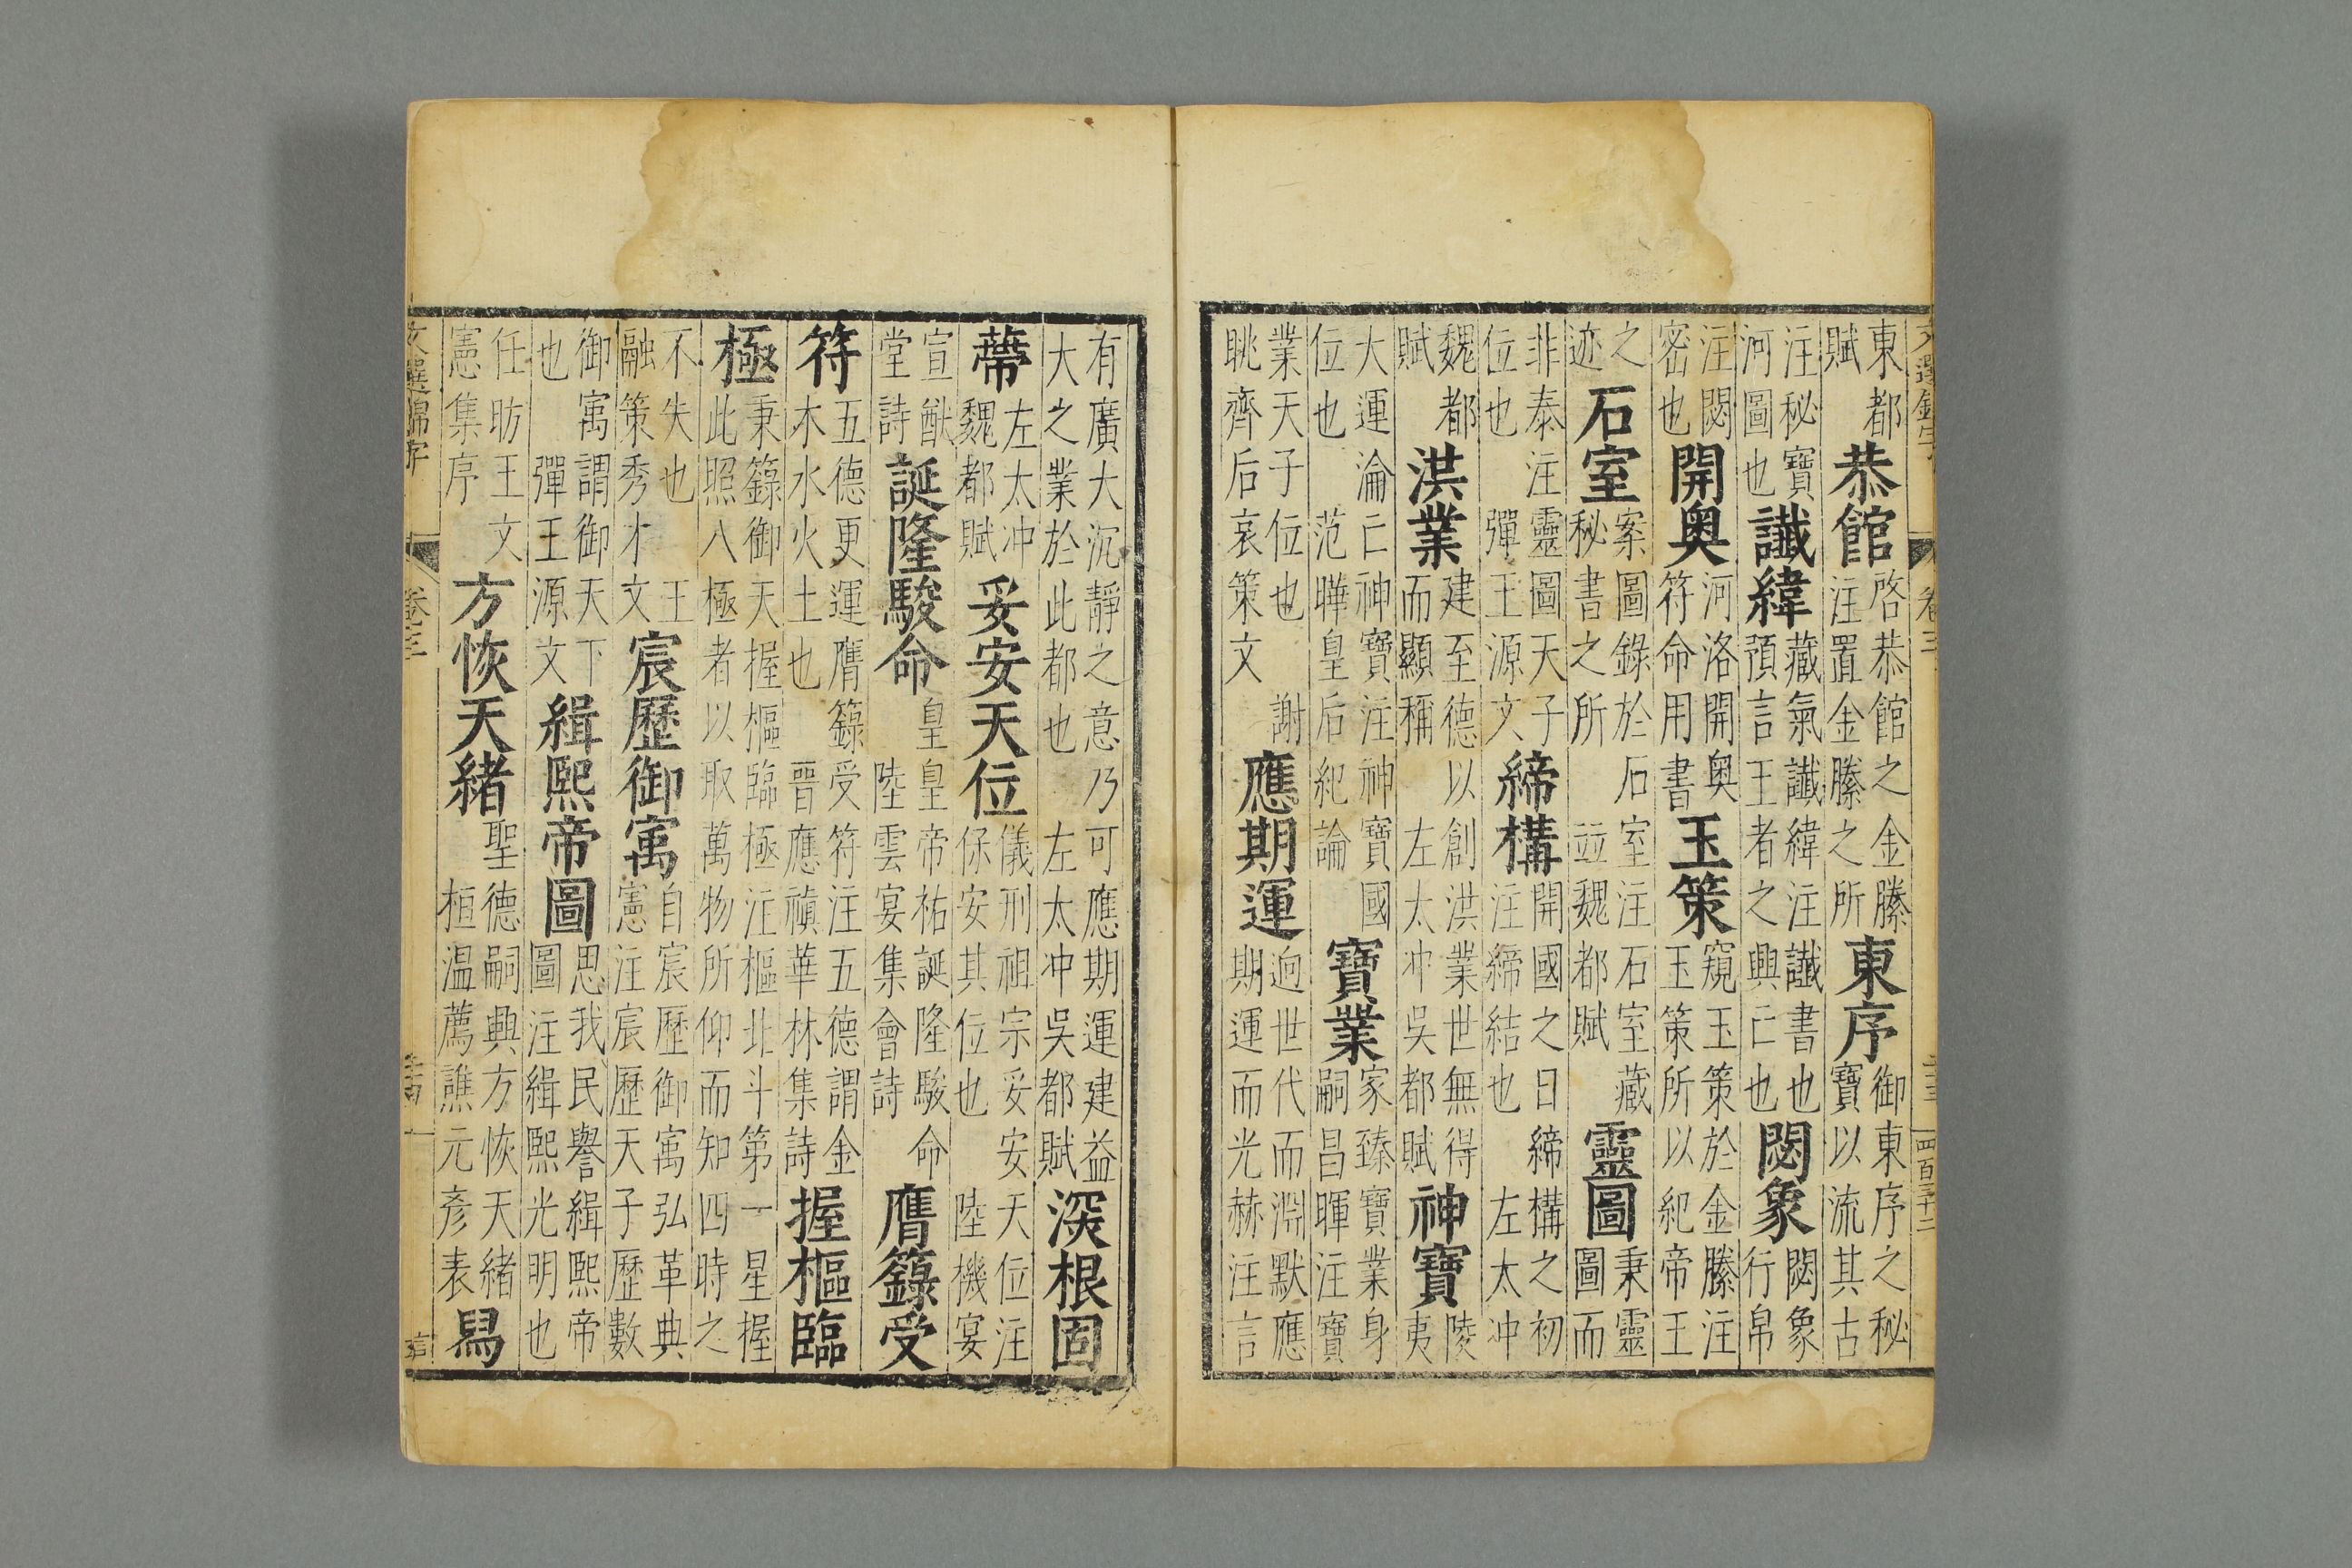 文選錦字 卷三 四百三十二
東都賦 恭館 啓恭館之金縢注置金縢之所 東序 御東序之秘寶以流其古
注秘寶河圖也 讖緯 藏氣讖緯注讖書也預言王者之興亡也 閟象 閟象行帛
注閟密也 開奧 河洛開奧符命用書 玉策 窺玉策於金縢注玉策所以紀帝王
之迹 石室 案圖錄於石室注石室藏秘書之所 竝魏都賦 靈圖 秉靈圖而
非泰注靈圖天子位也 彈王源文 締構 開國之日締構之初注締結也 左太冲
魏都賦 洪業 建至德以創洪業世無得而顯稱 左太冲吳都賦 神寶 陵夷
大運淪亡神寶注神寶國位也 范曄皇后紀論 寶業 家臻寶業身嗣昌暉注寶
業天子位也 謝眺齊后哀策文 應期運 逈世代而淵默應期運而光赫注言
有廣大沉靜之意乃可應期運建益大之業於此都也 左太冲吳都賦 深根固
蔕 左太冲魏都賦 妥安天位 儀刑祖宗妥安天位注保安其位也 陸機宴
宣猷堂詩 誕隆駿命 皇皇帝祐誕隆駿命 陸雲宴集會詩 膺籙受
符 五德更運膺籙受符注五德謂金木水火土也 晉應禎華林集詩 握樞臨
極 秉籙御天握樞臨極注樞北斗第一星握此照八極者以取萬物所仰而知四時之
不失也 王融策秀才文 宸歷御㝢 自宸歷御㝢弘革典憲注宸歷天子歷數
御㝢謂御天下也 彈王源文 緝熙帝圖 思我民譽緝熙帝圖注緝熙光明也
任昉王文憲集序 方恢天緒 聖德嗣興方恢天緒 桓温薦譙元彥表 舄
文選錦字 卷三